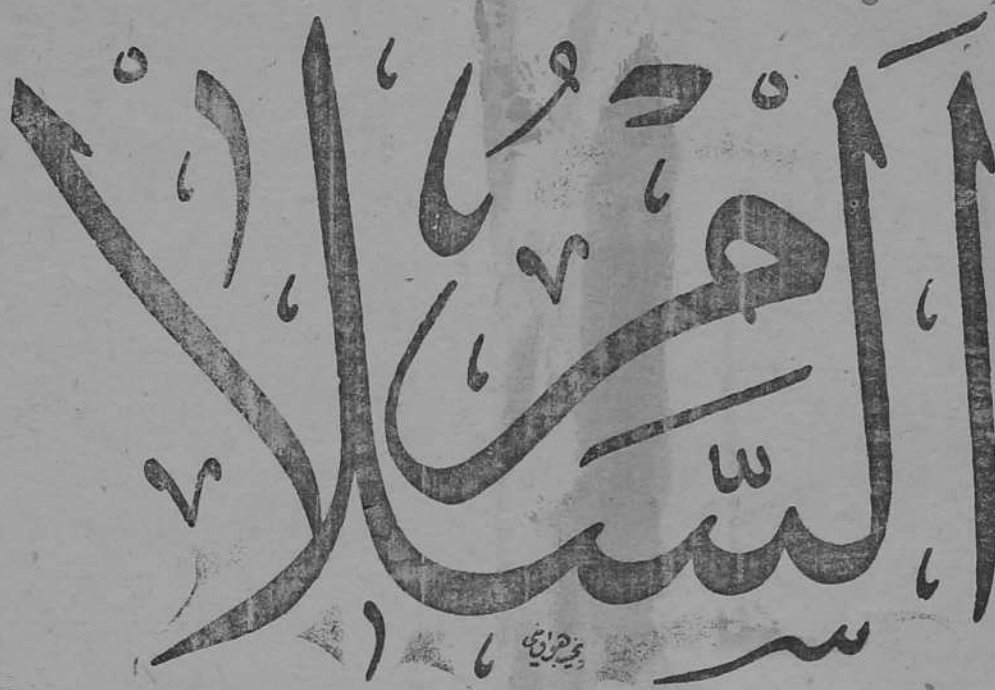 اَلسَّلام
نجيب هواويني